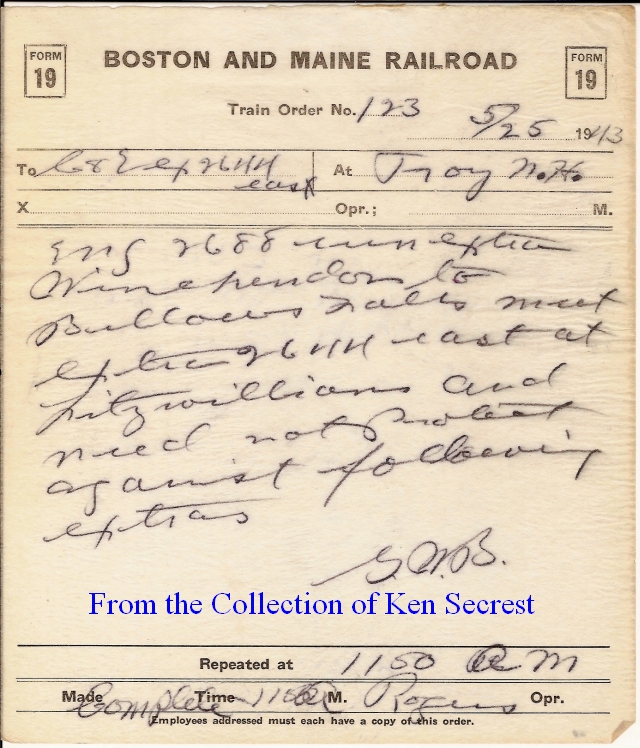 FORM 19
BOSTON AND MAINE RAILROAD
FORM 19
Train Order No. 123 5/25 1943
To C&E ex 2644 east At Troy N.H.
X Opr.; M.
Eng 2688 run extra
Winchendon to
Bellows Falls meet
extra 2644 east at
Fitzwilliam and
need not protect
against following
extras
G.W.B.
From the Collection of Ken Secrest
Repeated at 1150 AM
Made Complete Time 1150 A M. Rogers Opr.
Employees addressed must each have a copy of this order.